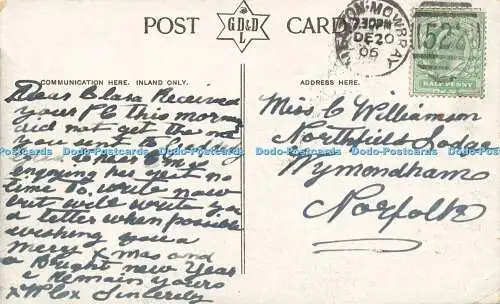 POST CARD
G D & D
L
MELTON-MOWBRAY
7.30PM
DE 20
05
522
HALFPENNY
COMMUNICATION HERE. INLAND ONLY.
ADDRESS HERE.
Dear Clara Received
your PC this morn
did not get the
engoying
time to write now
but will write you
a letter when possible
wishing you a
merry Xmas and
a Bright new Year
I remain yours
Sincerely
Miss C Williamson
Northfield
Wymondham
Norfolk
Dodo-Postcards Dodo-Postcards Dodo-Postcards Dodo-Postcards Dodo-Postcards Dodo-Postcards